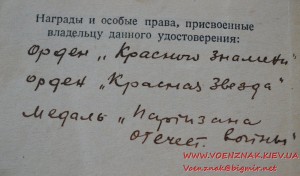 Награды и особые права, присвоенные
владельцу данного удостоверения:
Орден „Красного Знамени"
Орден „Красная Звезда"
Медаль „Партизана
Отечест. Войны"
WWW.VOENZNAK.KIEV.UA
Voenznak@bigmir.net